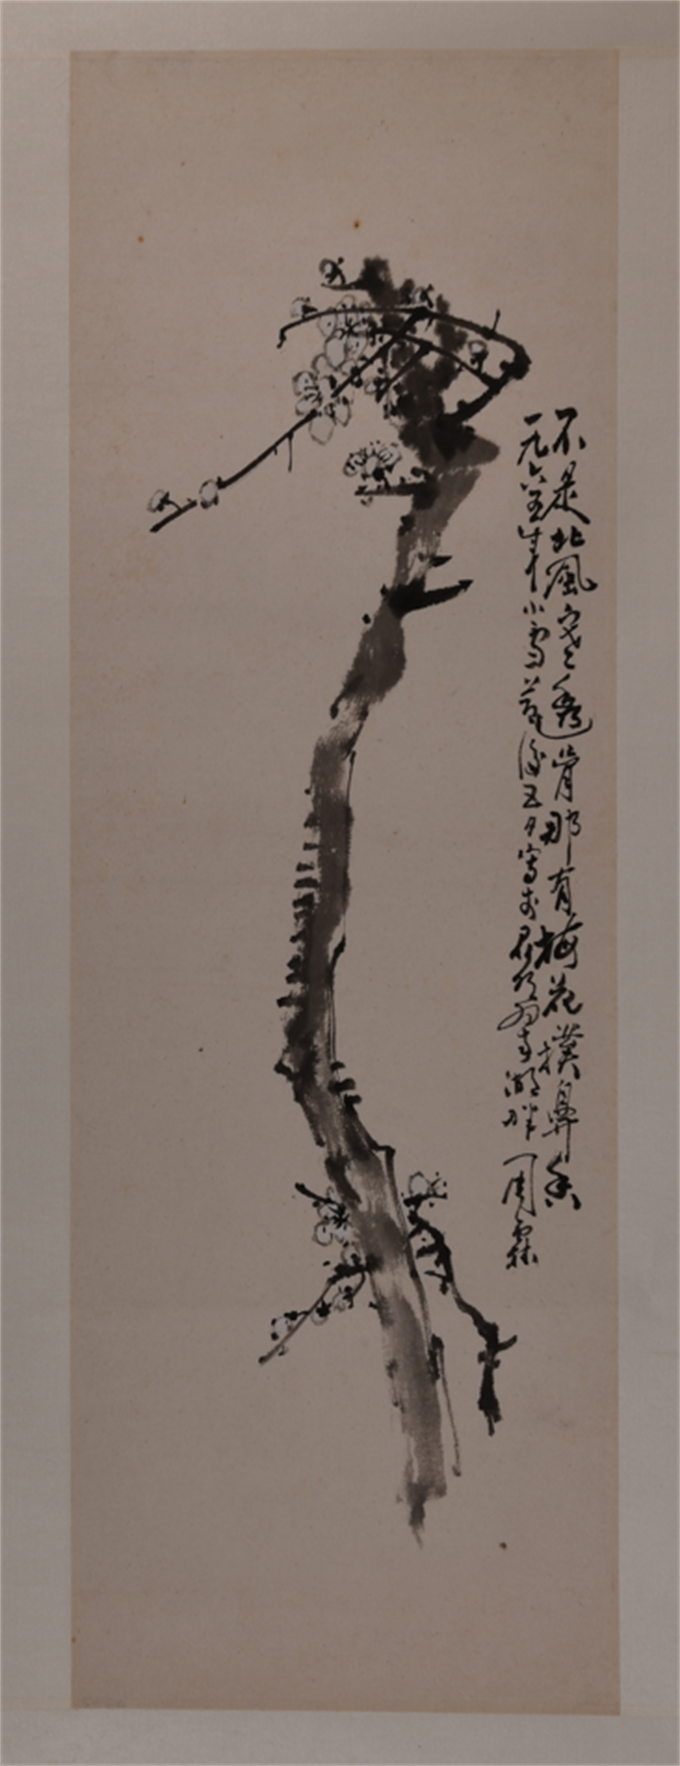 不是北風寒透骨那有梅花撲鼻香
一九六五年小雪節後五日寫於昆明翠湖畔 周霖